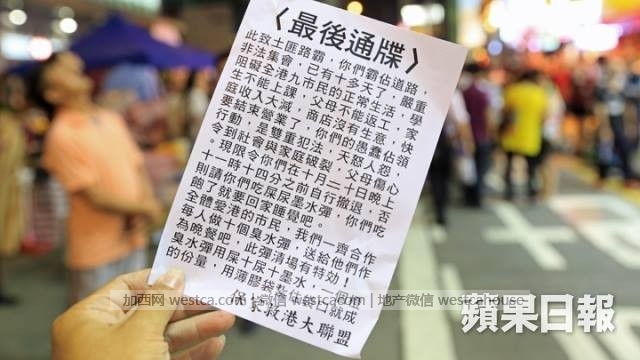 〈最後通牒〉
此致土匪路霸，你們霸佔道路，
非法集會，已有十多天了，嚴重
阻礙全港九市民的正常生活，學
生不能上課，父母不能返工，家
庭收入大減，商店沒有生意，快
要結束營業了，你們的愚蠢佔領
行動，是雙重犯法，天怒人怨，
令到社會與家庭破裂，父母傷心
。現限令你們在十月二十日晚上
十一時十四分之前自行撤退，否
則請你們吃屎尿墨水彈，你們吃
飽了就要回家睡覺吧。
全體愛港的市民，我們一齊合作
每人做十個臭水彈，送給他們作
為晚餐吧，此彈清場有特效！
臭水彈用屎十尿十墨水，
的份量，用薄膠袋
口就成
救港大聯盟
加西网 westca.com | 微信 westca.com | 地产微信 westcahouse
蘋果日報